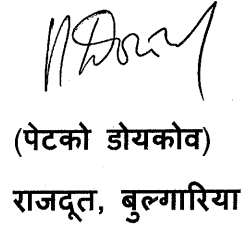 (पेटको डोयकोव)
राजदूत, बुल्गारिया